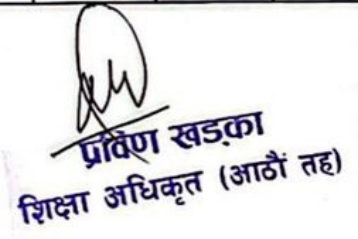 प्रविण खड्का
शिक्षा अधिकृत (आठौं तह)